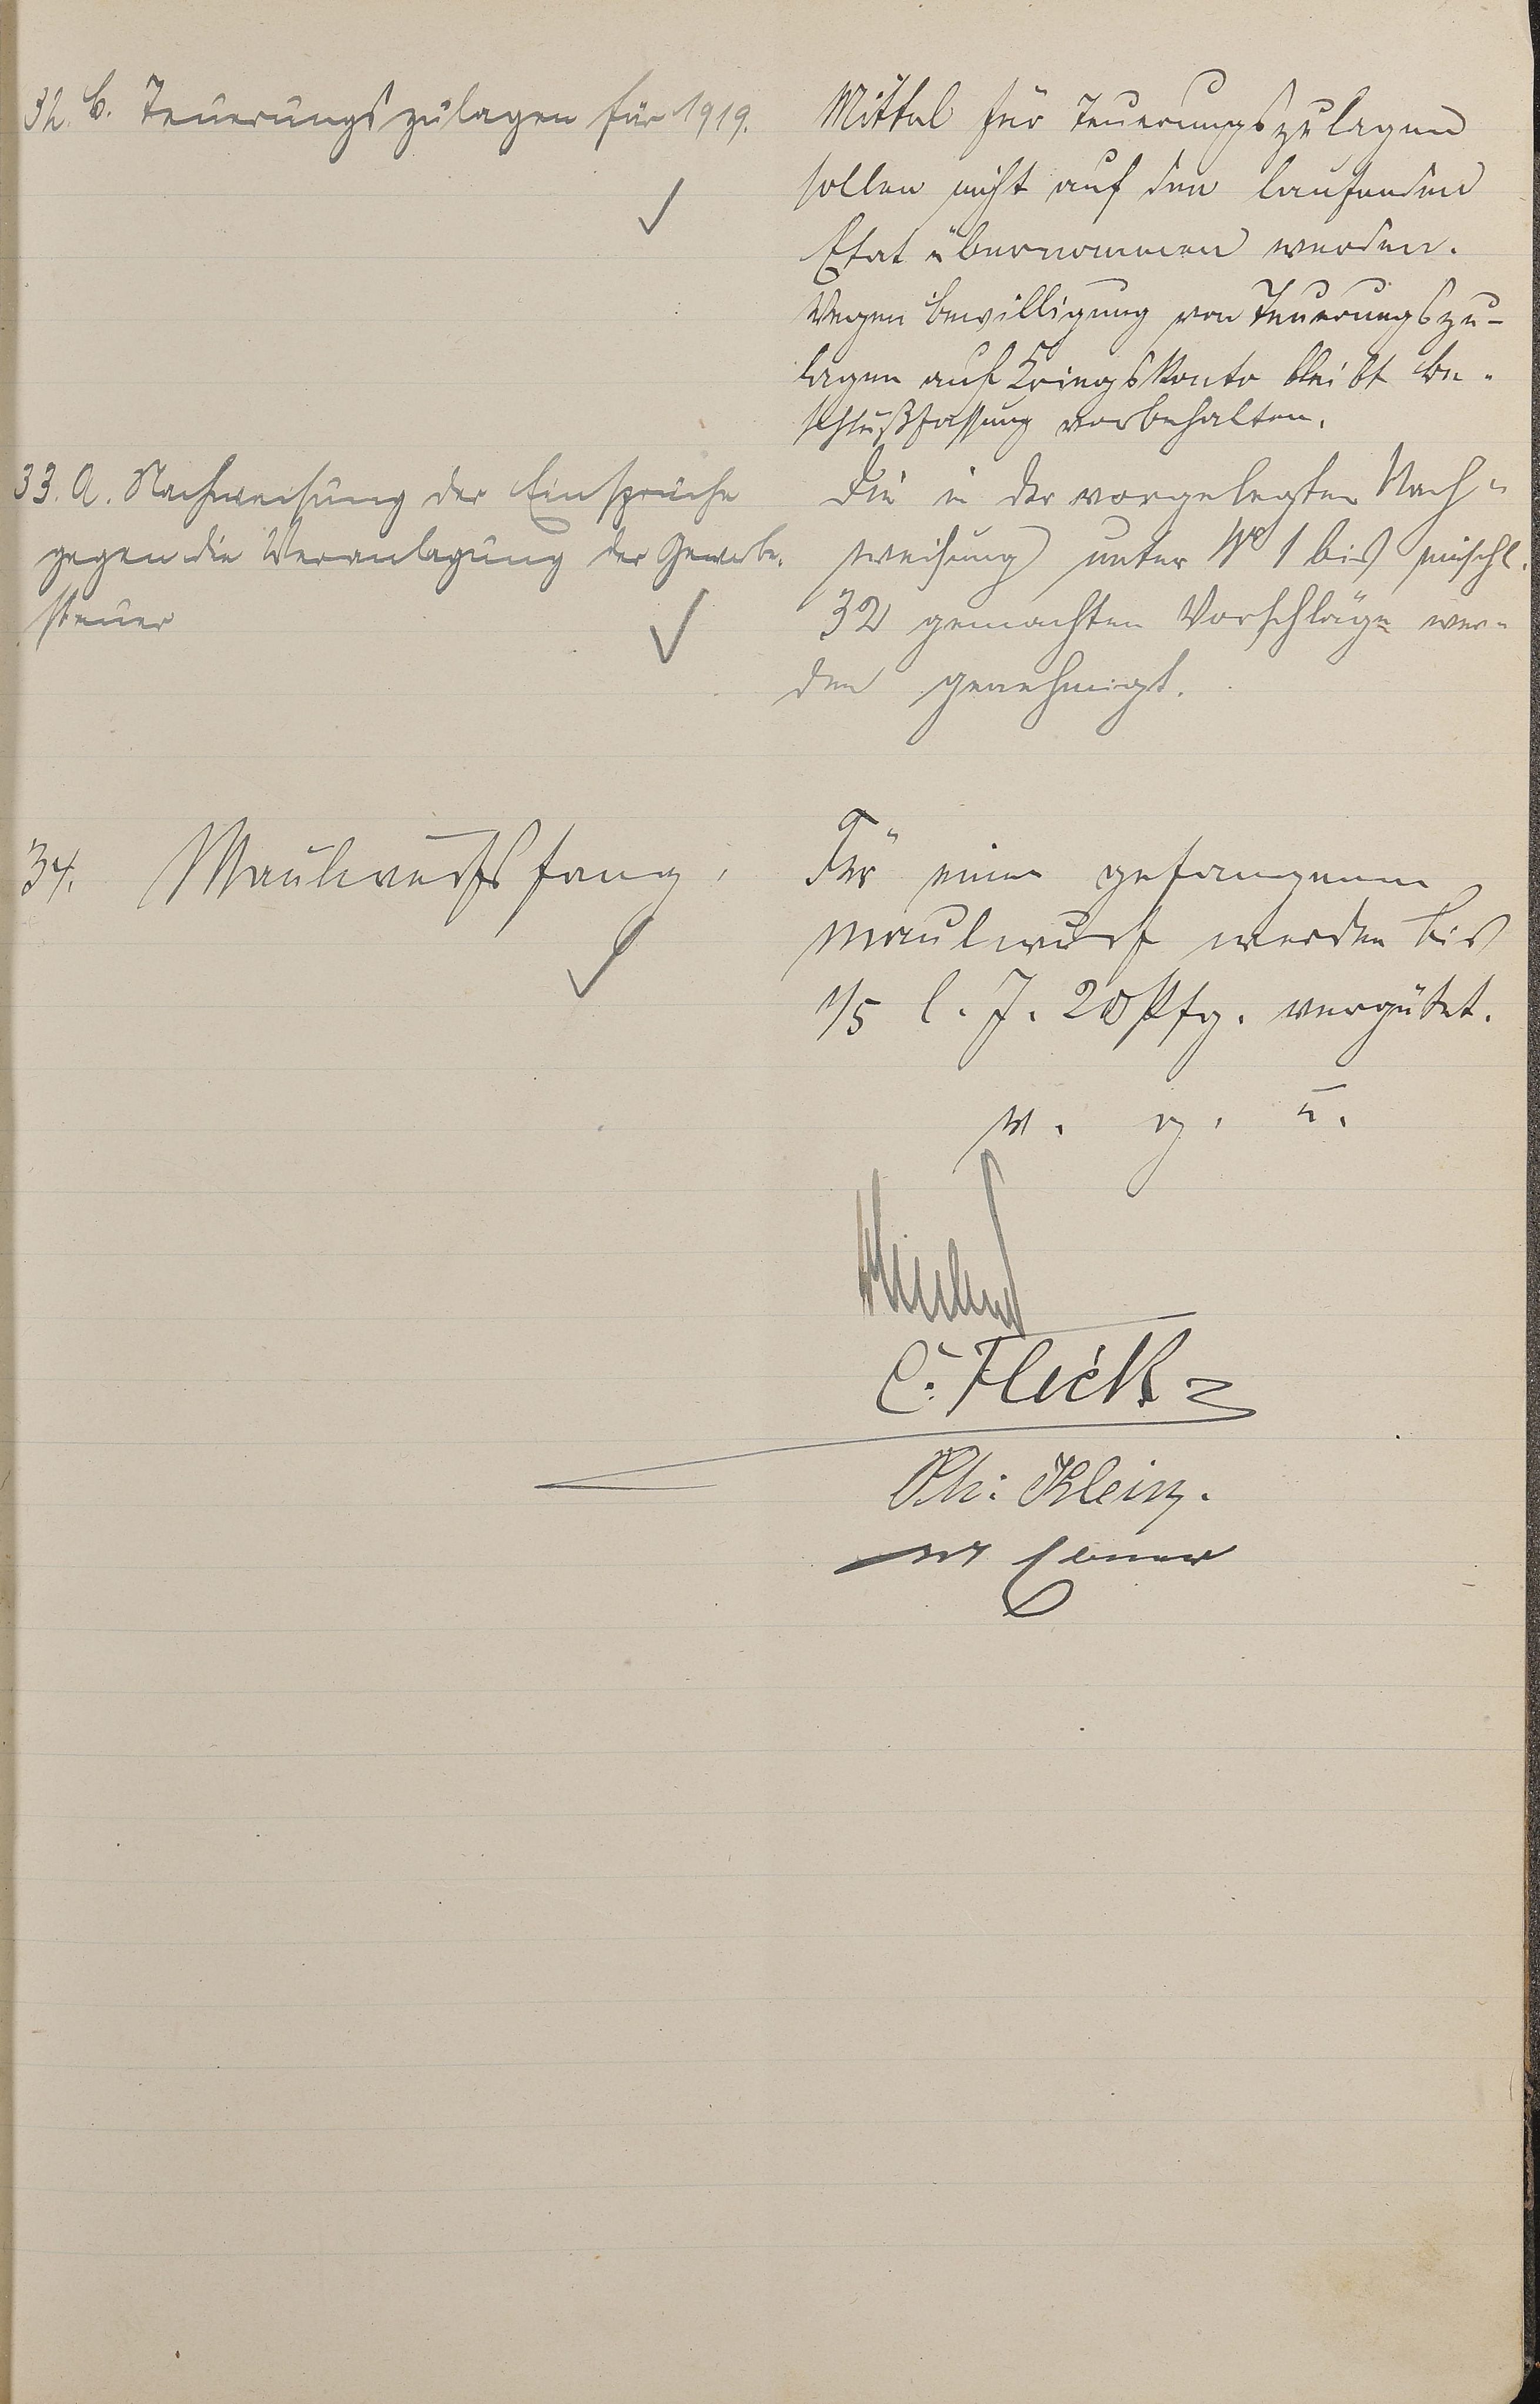 32. b. Teuerungszulagen für 1919.
Mittel für Teuerungszulagen
sollen nicht auf den laufenden
Etat übernommen werden.
Wegen Bewilligung von Teuerungszu-
lagen auf Kriegskonto bleibt Be-
schlußfassung vorbehalten.
33. a. Nachweisung der Einsprüche
gegen die Veranlagung der Gewerbe-
steuer
Die in der vorgelegten Nach-
weisung unter No 1 bis einschl.
32 gemachten Vorschläge wer-
den genehmigt.
34. Maulwurfsfang.
Für einen gefangenen
Maulwurf werden bis
1/5 l. J. 20 Pfg. vergütet.
v. g. u.
C. Flick
Ph: Klein.